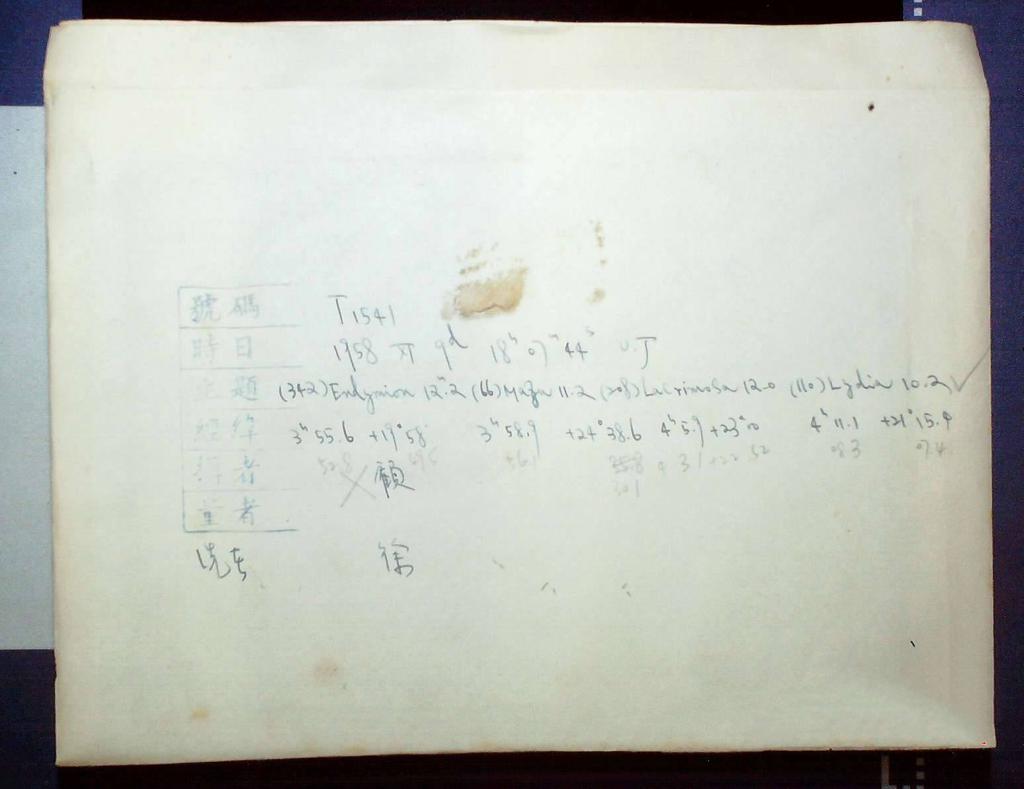 號碼 T1541
時日 1958 XI 9ᵈ 18ʰ 07ᵐ 44ˢ U.T
題 (342) Endymion 12ᵐ.2 (66) Maja 11.2 (208) Lacrimosa 12.0 (110) Lydia 10.2 ✓
經緯 3ʰ 55.6 +19° 58' 3ʰ 58.9 +24° 38.6 4ʰ 5.9 +23° 10 4ʰ 11.1 +21° 15.9
52.8 56.1 +22 52 08.3 07.4
者 顧 301
量者
徐